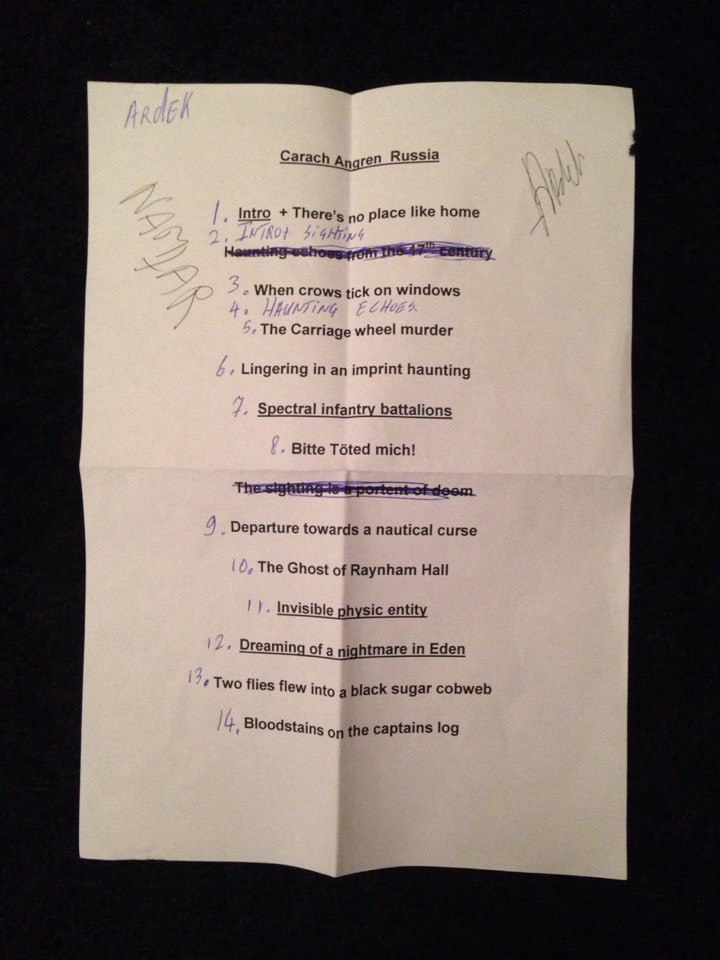 ARdEK
Carach Angren Russia
Ardek
NAMTAR
1. Intro + There's no place like home
2. INTRO+ SIGHTING
Haunting echoes from the 17th century
3. When crows tick on windows
4. HAUNTING ECHOES.
5. The Carriage wheel murder
6. Lingering in an imprint haunting
7. Spectral infantry battalions
8. Bitte Töted mich!
The sighting is a portent of doom
9. Departure towards a nautical curse
10. The Ghost of Raynham Hall
11. Invisible physic entity
12. Dreaming of a nightmare in Eden
13. Two flies flew into a black sugar cobweb
14. Bloodstains on the captains log